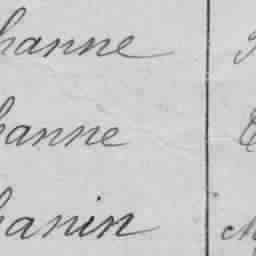 hanne
hanne
hanin